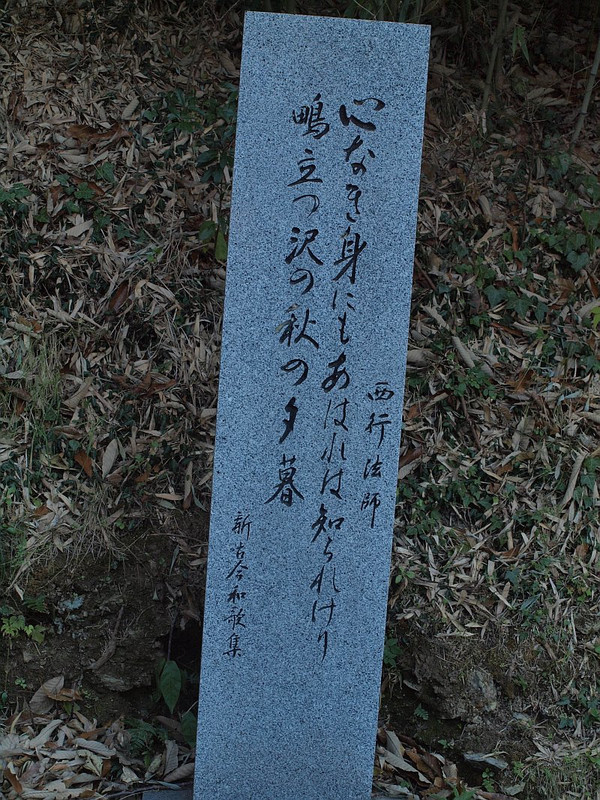 西行法師
心なき身にもあはれは知られけり
鴫立つ沢の秋の夕暮
新古今和歌集